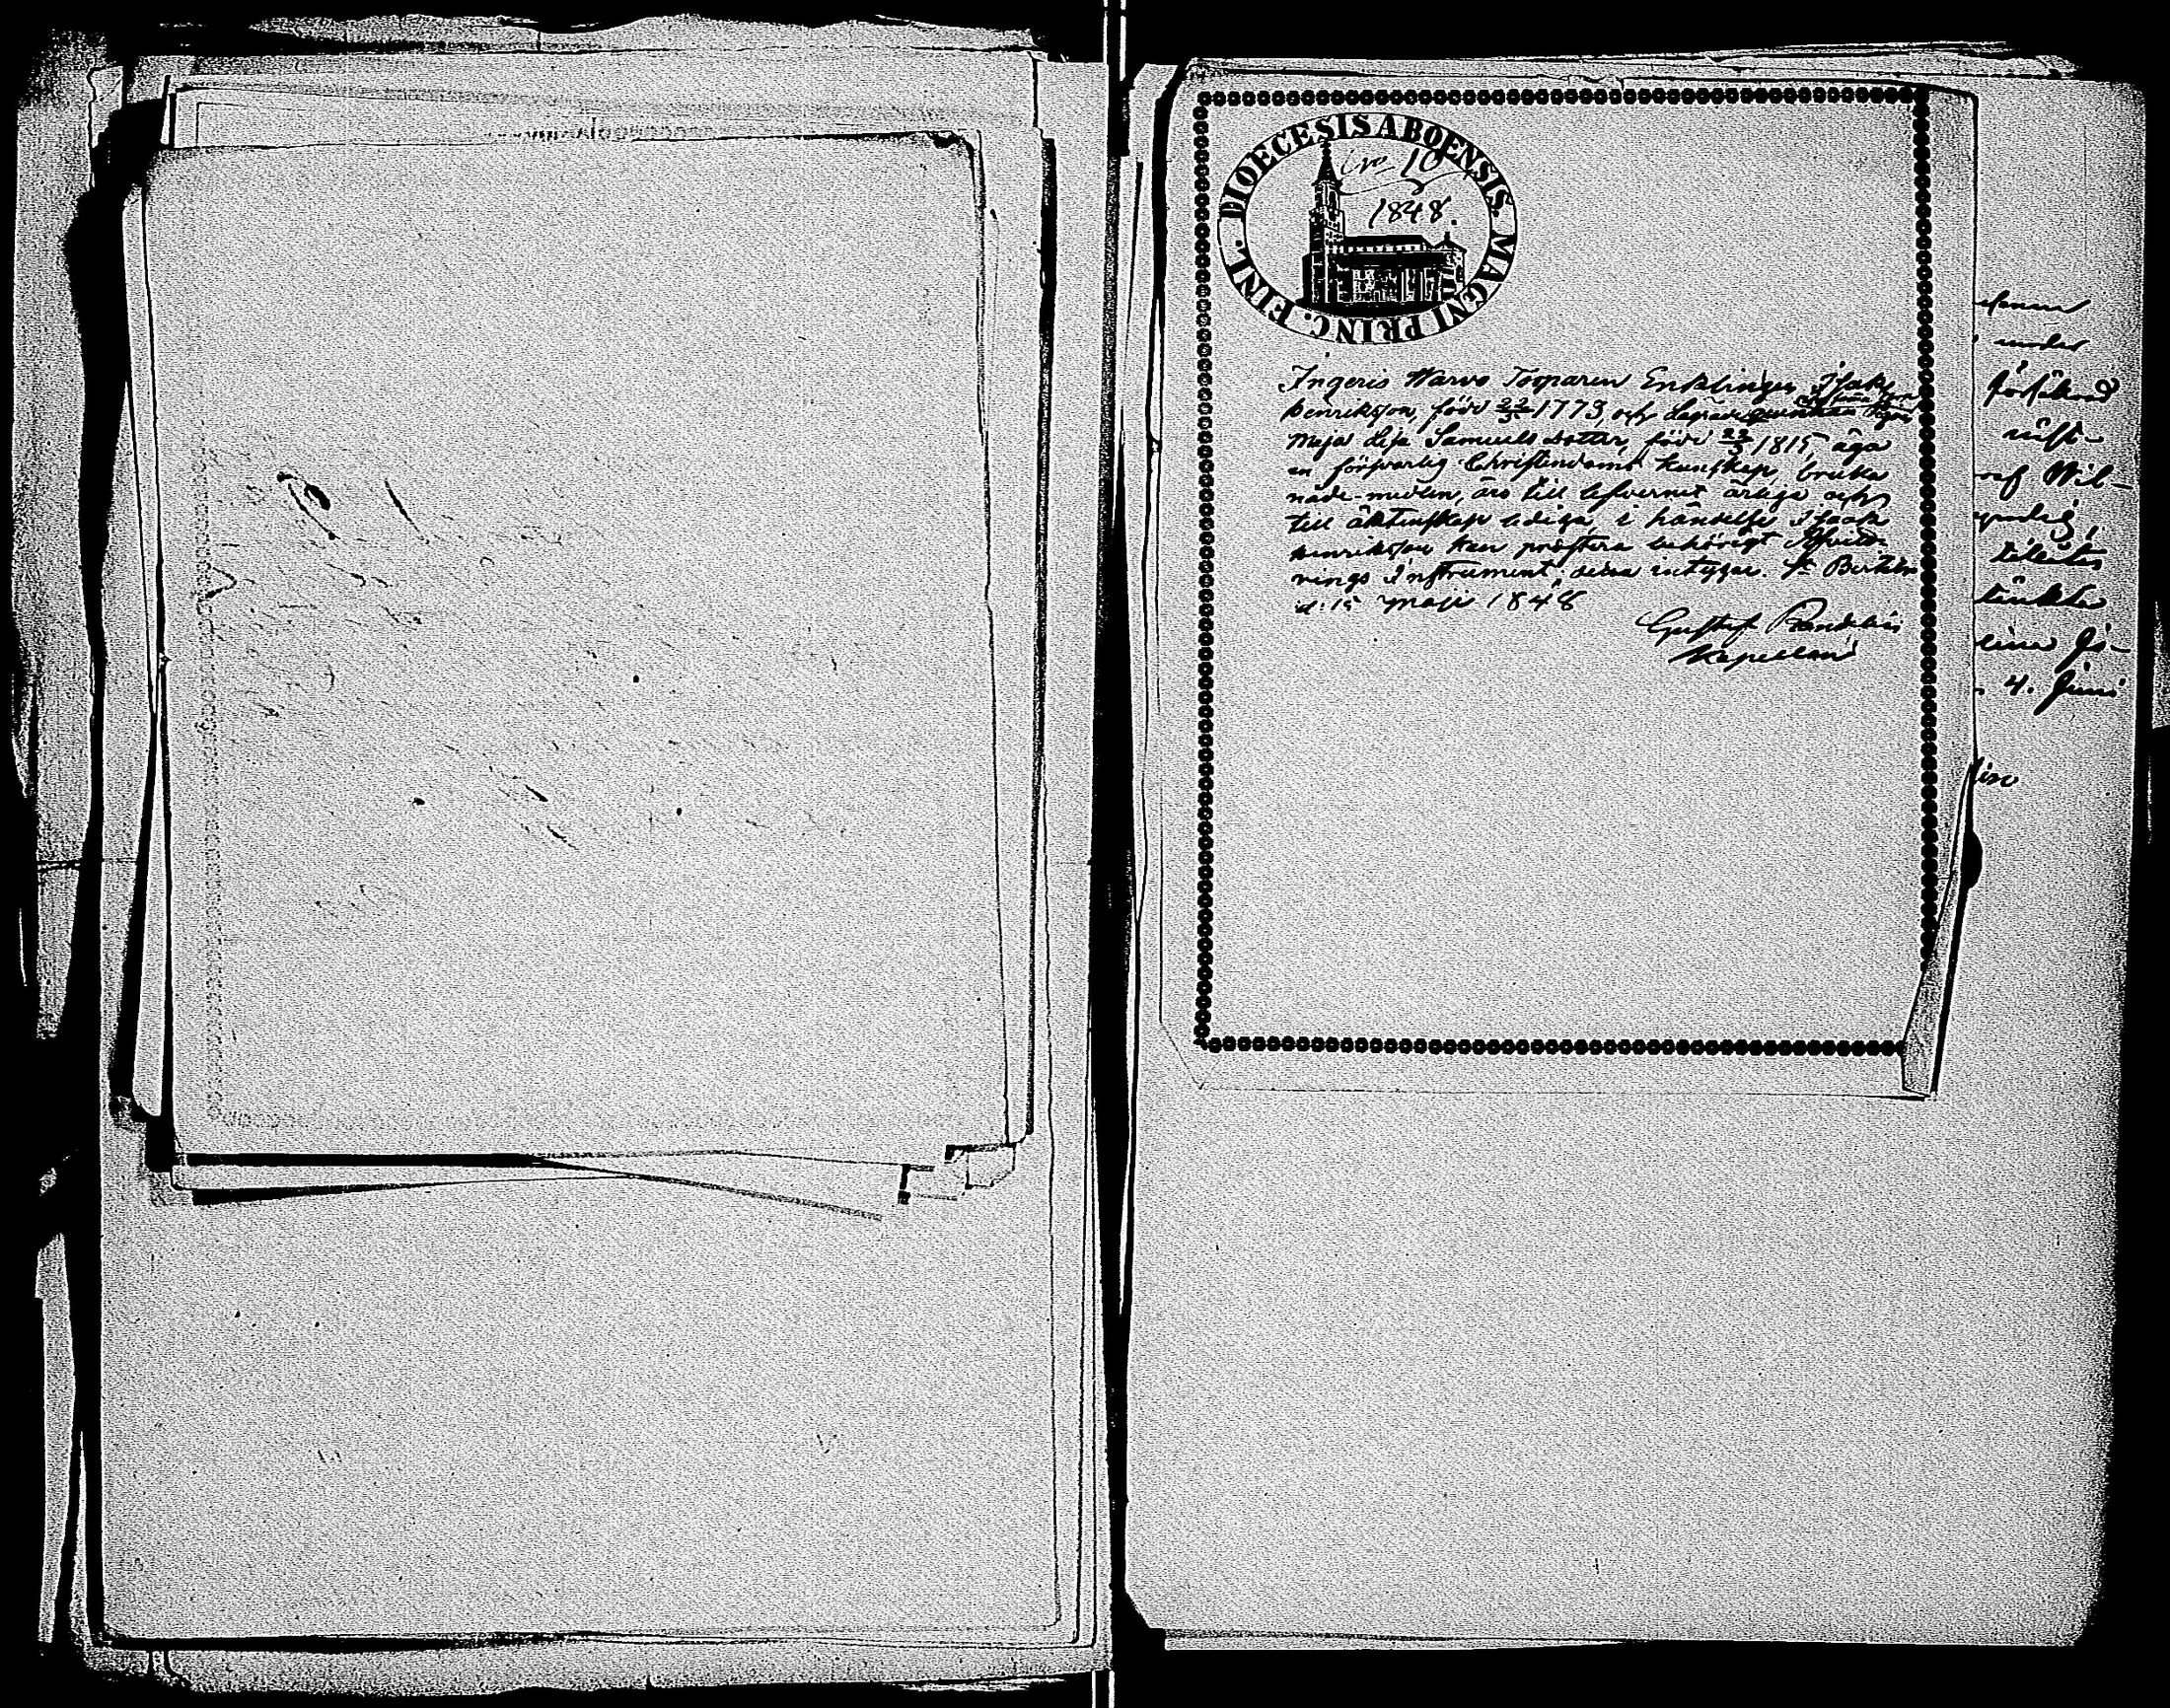 DIOECESIS ABOENSIS. MAGNI PRINC. FINL.
No 10
1848.
Ingeris Warvo Torparen Enklingen Isak
Henriksson, född 22/3 1773, och
Maja Lisa Samuels dotter, född 23/3 1815, äga
en försvarlig Christendoms kunskap, bruka
nåde-medlen, äro till lefvernet ärliga och
till äktenskap lediga, i händelse Isaak
Henriksson kan prestera behörigt Afvitt-
rings Instrument; detta intygar. St Bertils
d. 15 Maji 1848
Gustaf
Kapellan
under
försäkrad
af Wil-
tillåtes
4. Juni